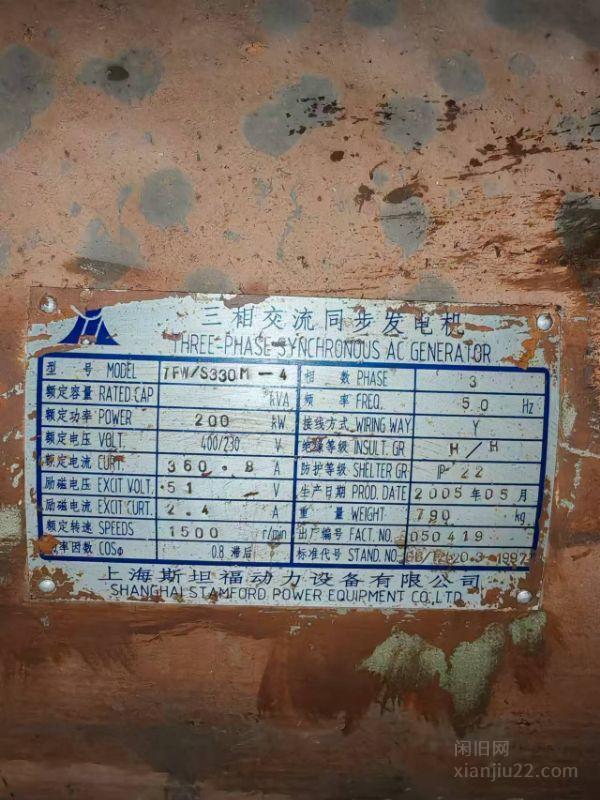 三相交流同步发电机
THREE-PHASE SYNCHRONOUS AC GENERATOR
型号 MODEL TFW/S330M-4 相数 PHASE 3
额定容量 RATED.CAP KVA 频率 FREQ. 50 Hz
额定功率 POWER 200 kW 接线方式 WIRING WAY Y
额定电压 VOLT. 400/230 V 绝缘等级 INSULT. GR H/H
额定电流 CURT. 360.8 A 防护等级 SHELTER GR IP 22
励磁电压 EXCIT VOLT. 51 V 生产日期 PROD. DATE 2005年05月
励磁电流 EXCIT CURT. 2.4 A 重量 WEIGHT 790 kg
额定转速 SPEEDS 1500 r/min 出厂编号 FACT. NO. 050419
功率因数 COSΦ 0.8 滞后 标准代号 STAND. NO.
上海斯坦福动力设备有限公司
SHANGHAI STAMFORD POWER EQUIPMENT CO.,LTD.
闲旧网
xianjiu22.com